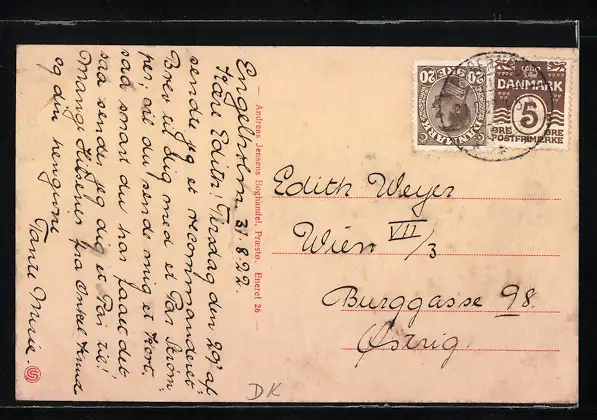 Engelholm 31.8.22.
Kære Edith! Tirsdag den 29' ds
sende jeg et recommanderet
Brev til dig med et Par Strøm-
per, vil du sende mig et Kort,
saa snart du har faaet det,
saa sende jeg dig et Par til!
Mange Hilsener fra Onkel Knud
og din hengivne
Tante Marie.
— Andreas Jensens Boghandel, Præstø. Eneret 26 —
20 20
DANMARK
DANMARK
5
ØRE ØRE
POSTFRIMÆRKE
Edith Weyer
Wien VII/3
Burggasse 98
Østrig
DK